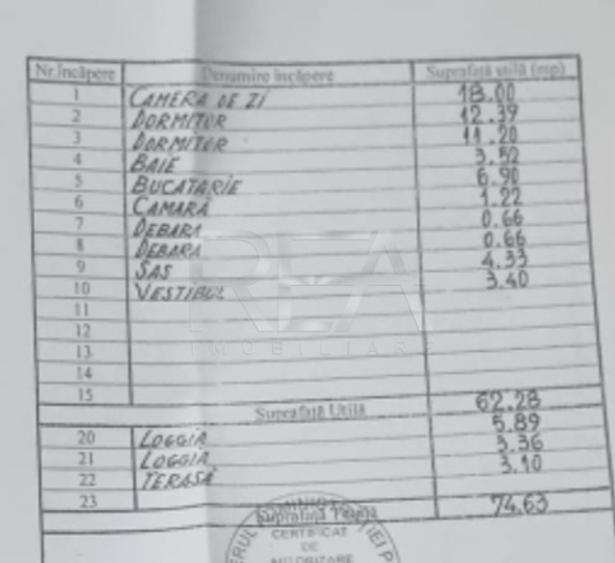 Nr.încăpere Denumire încăpere Suprafață utilă (mp)
1 CAMERA DE ZI 18.00
2 DORMITOR 12.39
3 DORMITOR 11.20
4 BAIE 3.52
5 BUCATARIE 6.90
6 CAMARĂ 1.22
7 DEBARA 0.66
8 DEBARA 0.66
9 SAS 4.33
10 VESTIBUL 3.40
11
12
13
14
15
REA
IMOBILIARE
Suprafață Utilă 62.28
20 LOGGIA 5.89
21 LOGGIA 3.36
22 TERASĂ 3.10
23
Suprafața Totală 74.63
CERTIFICAT
DE
AUTORIZARE